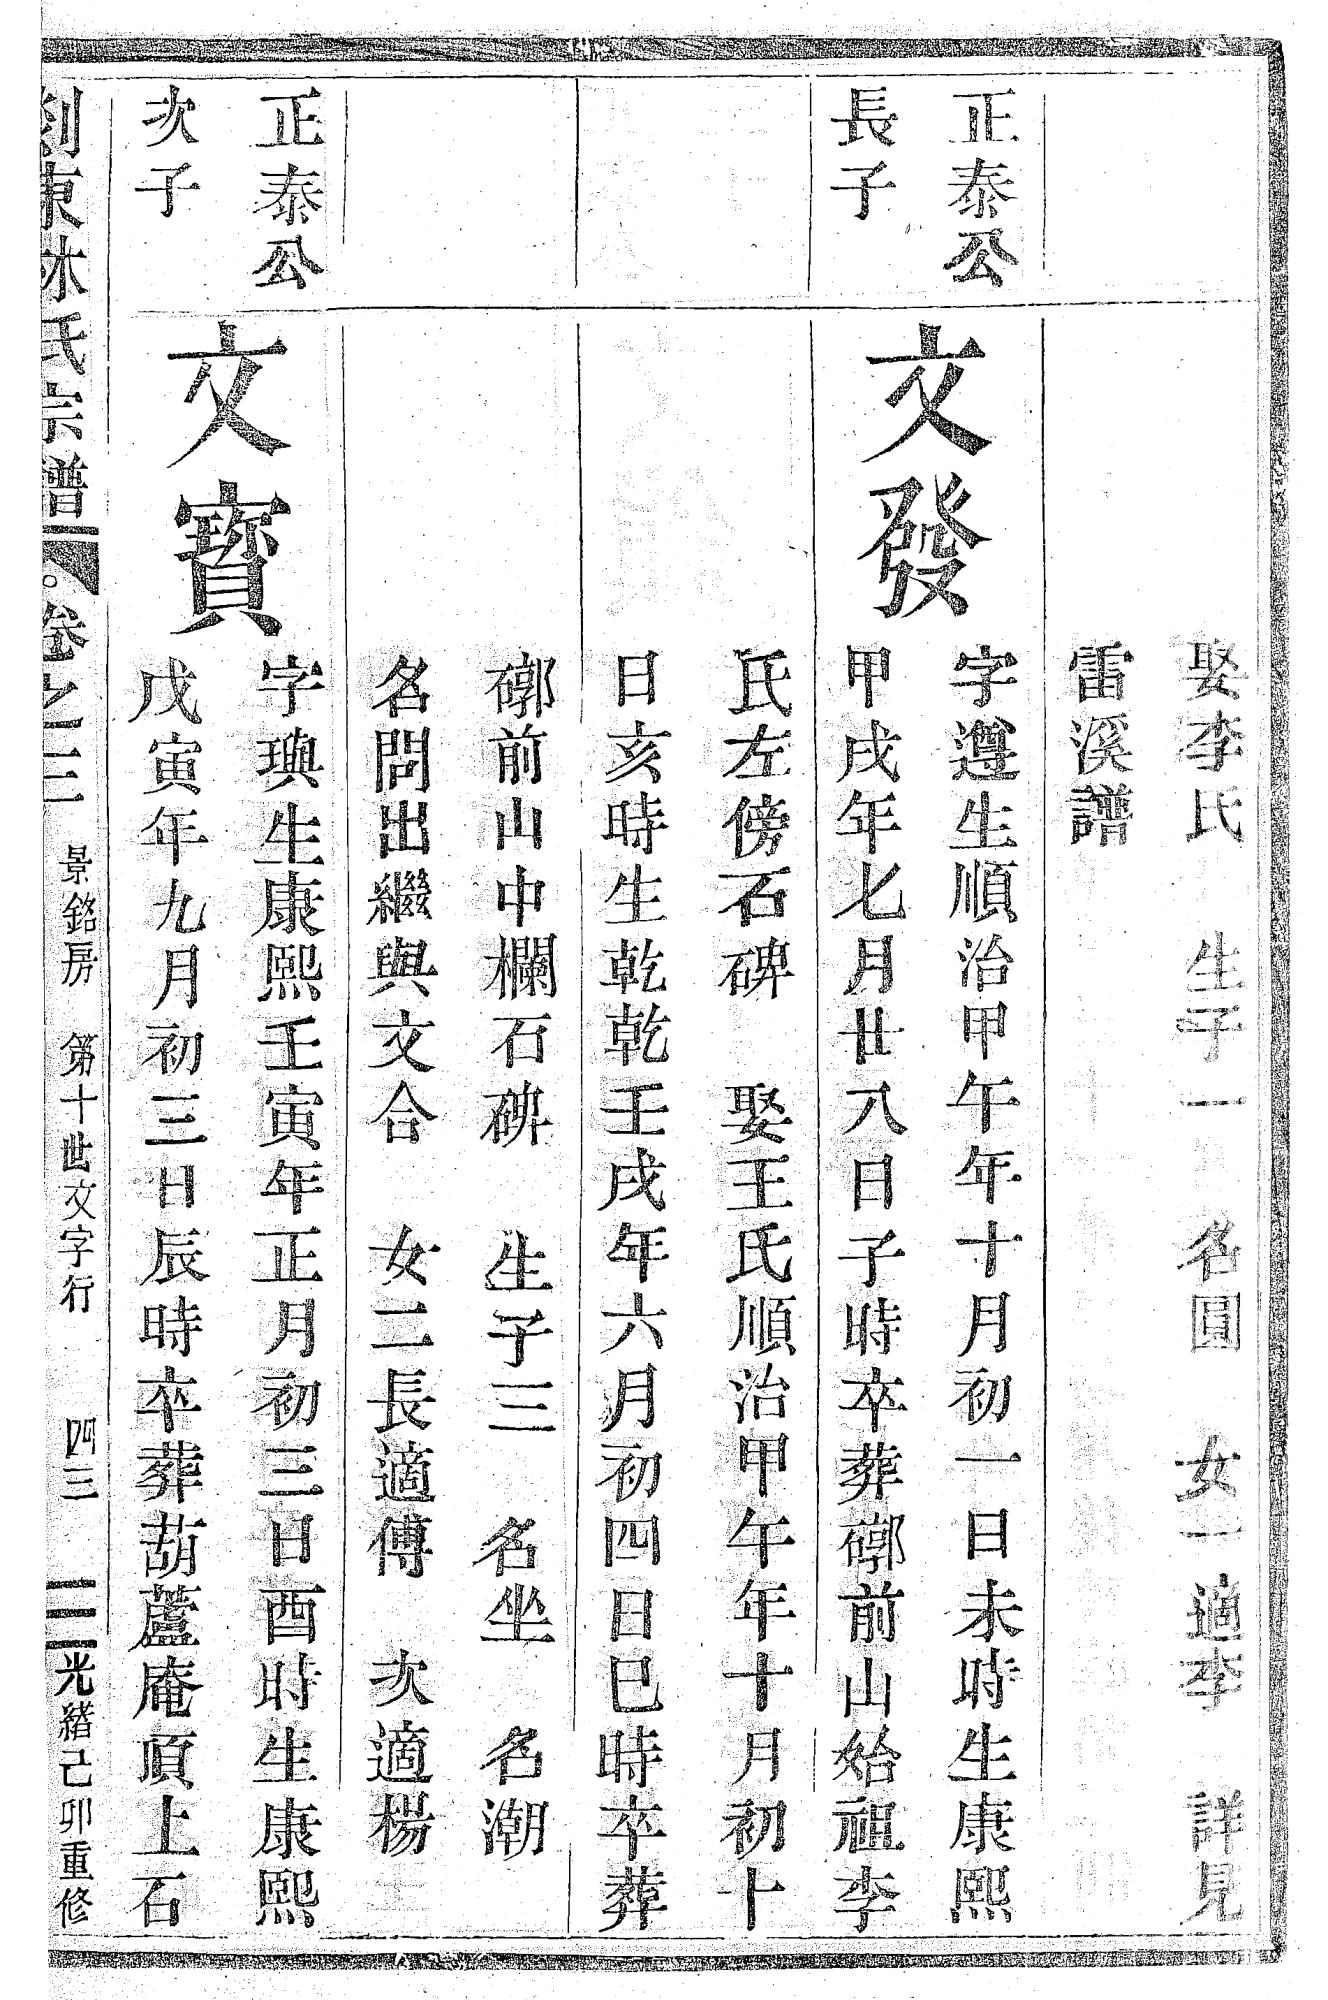 娶李氏 生子一 名圓 女一適李 詳見
雷溪譜
正泰公
長子
文發
字遵生順治甲午年十月初一日未時生康熙
甲戌年七月廿八日子時卒葬𥕖前山始祖李
氏左傍石碑 娶王氏順治甲午年十月初十
日亥時生乾乾壬戌年六月初四日巳時卒葬
𥕖前山中欄石碑 生子三 名坐 名潮
名問出繼與文合 女二長適傅 次適楊
正泰公
次子
文寳
字璵生康熙壬寅年正月初三日酉時生康熙
戊寅年九月初三日辰時卒葬葫蘆庵頂上石
剡東林氏宗譜 卷之三 景銘房 第十世文字行 四三 光緒己卯重修